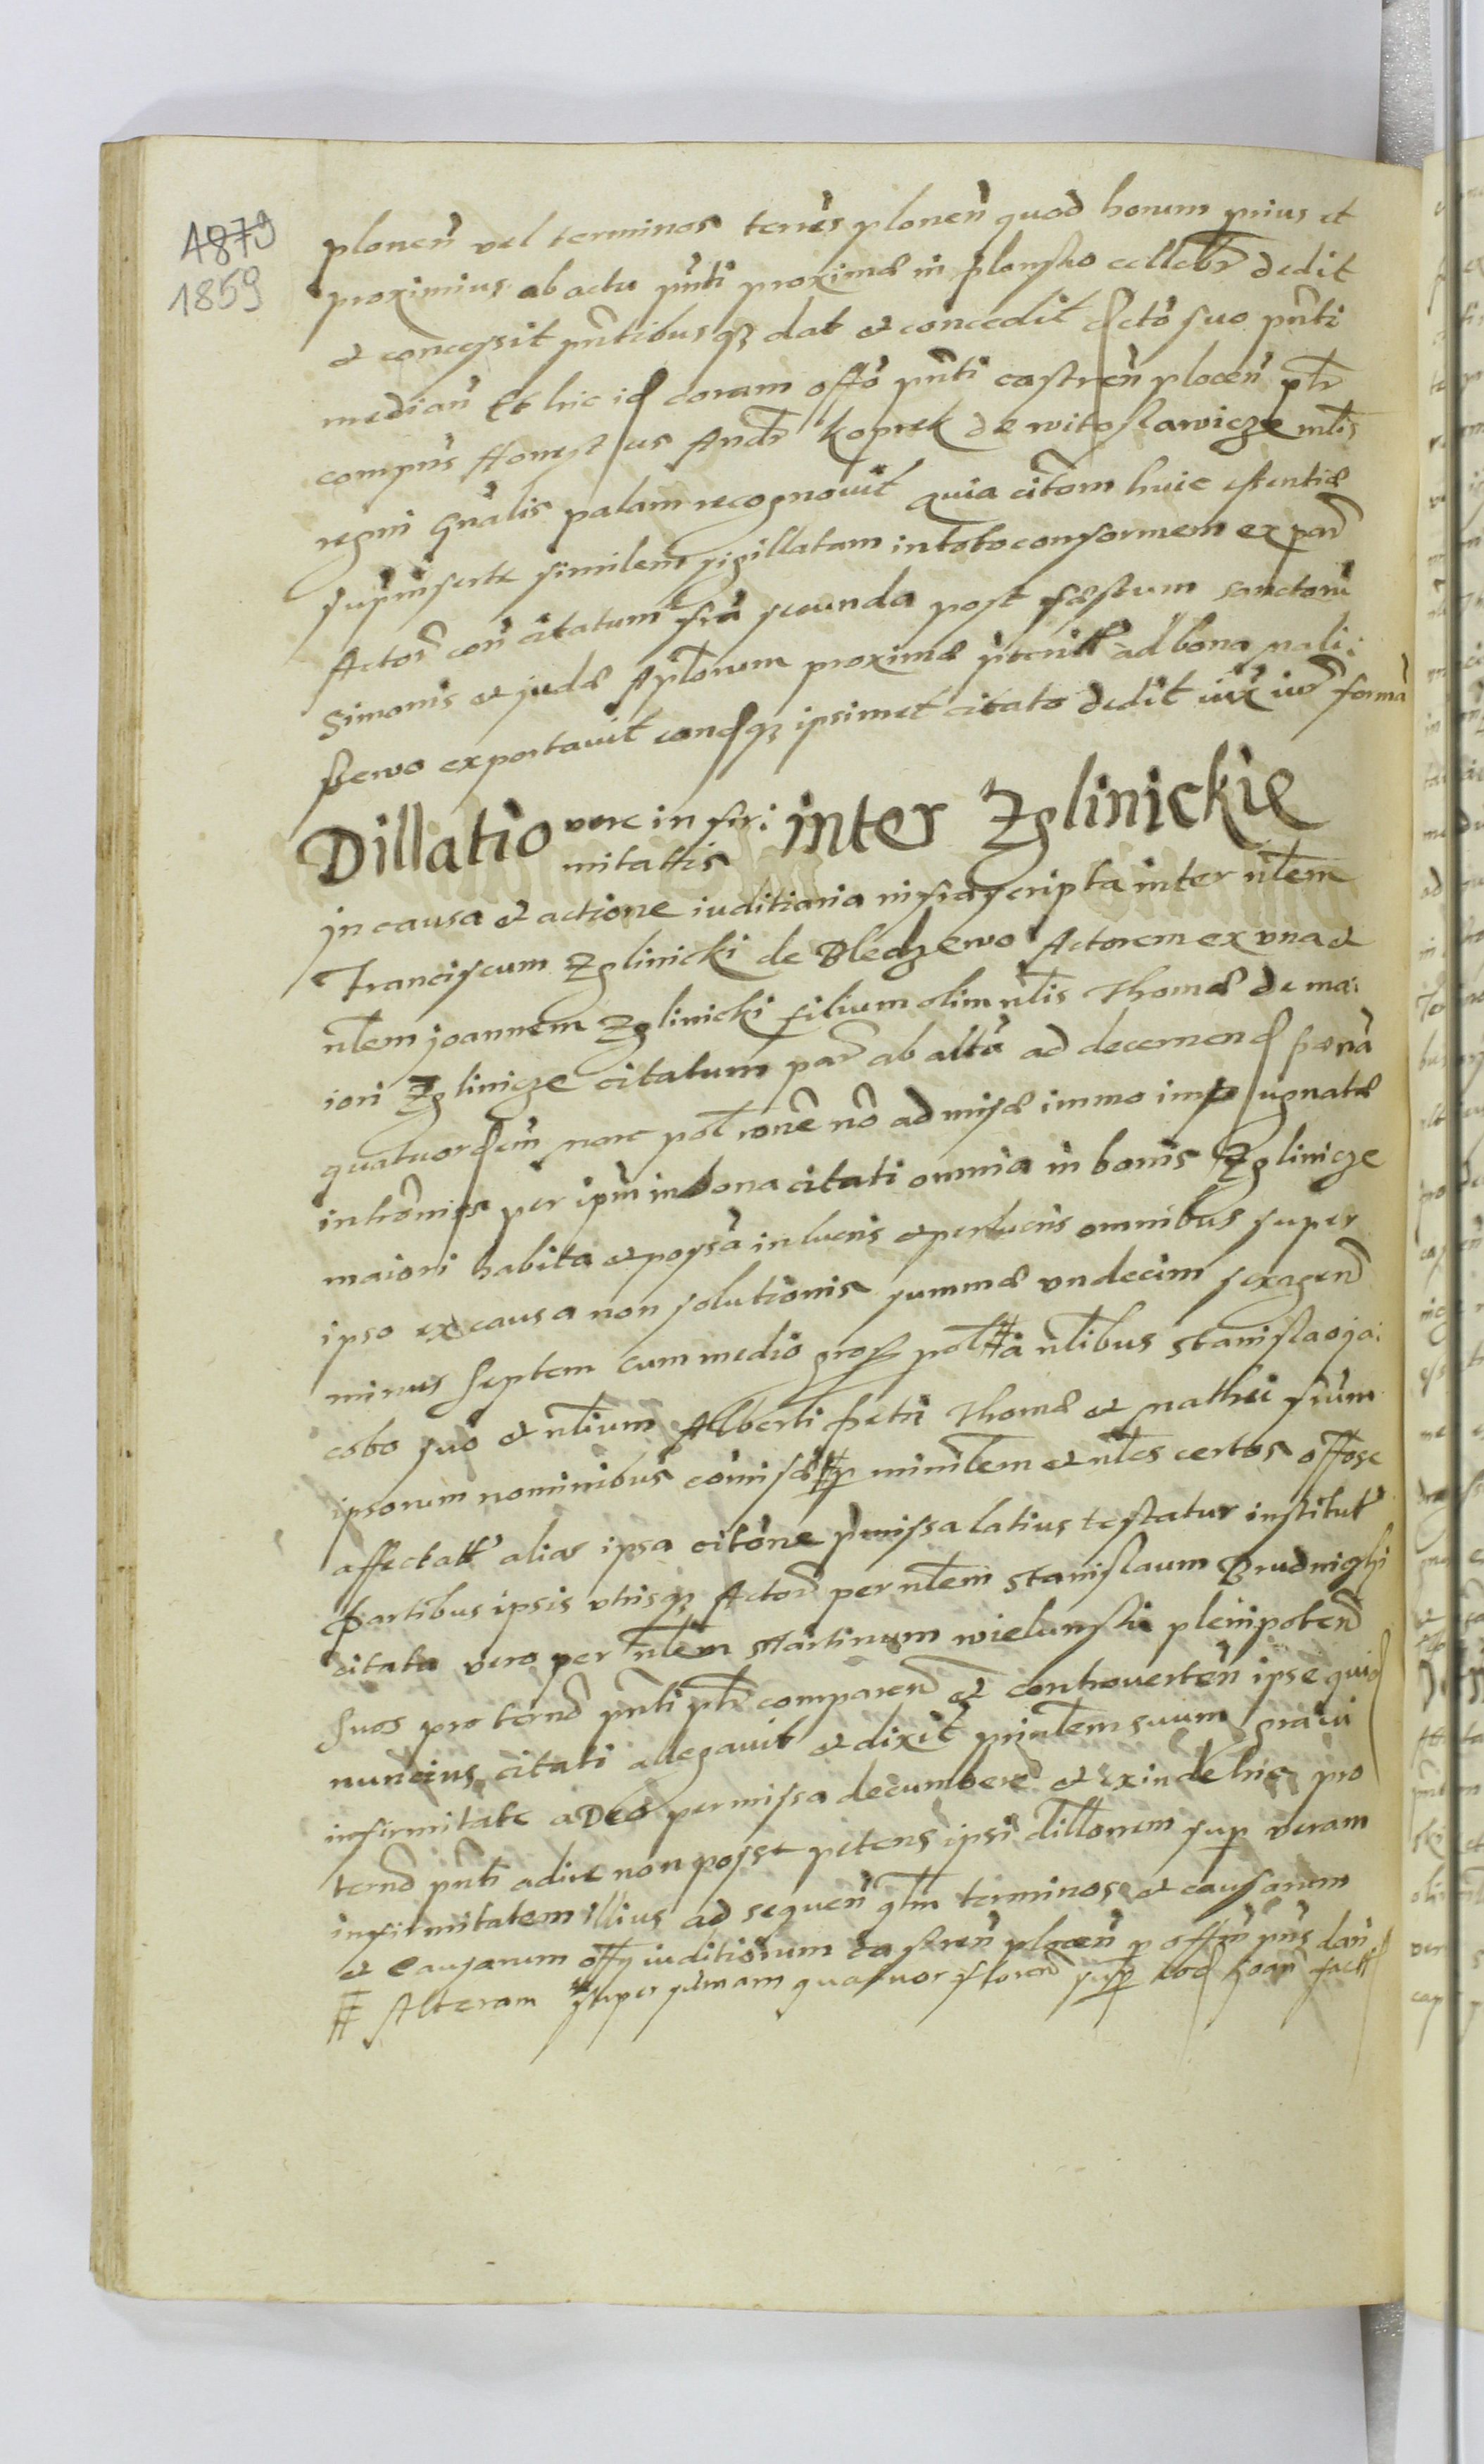 4879
1859
plonen̄ vel terminos terr̄es plonen̄ quod horum prius et
proximius ab actu pn̄ti proximæ in plonsko cellebr̄ dedit
et concessit pn̄tibusqȝ dat et concedit decto suo pn̄ti
median̄ Et hic id coram offō pn̄ti castren̄ plocen̄ plr̄
compn̄s Honestus Andr̄ koprek de witoslawicze mlis
regni gn̄alis palam recognouit quia citōm huic sentiæ
supinserte similem sigillatam in toto conformem ex par̄
Actor̄ con̄ citatum fr̄a secunda post festum sanctorū
Simonis et judæ Apl̄orum proximæ pterit ad bona mali:
szewo exportauit eandqȝ ipsimet citato dedit iux̄ iur̄ formā
Dillatio veræ infir: mitattis inter Zglinickie
jn causa et actione iuditiaria infrascripta inter nl̄em
Franciscum Zglinicki de Bledzewo Actorem ex vna et
nl̄em joannem Zglinicki filium olim nl̄is Thomæ de ma:
iori Zglinicze citatum par̄ ab altā ad decernend pœnā
quatuordecim marc pol̄ rōne nō admissæ immo impugnatæ
intrōmiss per ipm̄ in bona citati omnia in bonis Zglinicze
maiori habita et possā in lucris et perlucris omnibus super
ipso ex causa non solutionis summæ vndecim sexagen̄
minus septem cum medio gross pol̄ # ā nl̄ibus Stanislao ja:
cobo suō et nl̄ium Alberti Petri Thomæ et Mathei fr̄um
ipsorum nominibus cōmissæ # p minl̄em et nl̄es certos offose
affectatt alias ipsa citōne pmissa latius testatur institut
Partibus ipsis vtrisqȝ Actor̄ per nl̄em Stanislaum Brudniczki
citato vero per nl̄em Martinum wielunski plenipoten̄
suos pro tern̄o pn̄ti plr̄ comparen̄ et controuerten̄ ipse quid
nuncius citati allegauit et dixit prin̄lem suum graui
infirmitate a Deo permissa decumbere et exinde hic pro
tern̄o pn̄ti adire non posse petens ipsi dillōnem sup veram
infirmitatem illius ad sequen̄ qlm̄ terminos et causarum
et causarum offy iuditiorum castren̄ plocen̄ p offm̄ pn̄s dan̄
# Alteram # super sum̄am quatuor floren̄ sup eod joan̄ fact